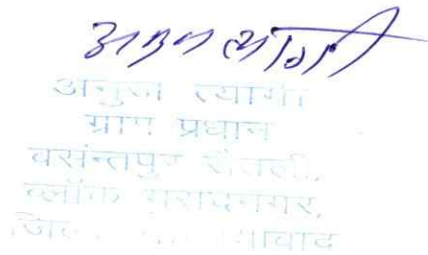 अनुज त्यागी
अनुज त्यागी
ग्राम प्रधान
वसन्तपुर सैंतली,
ब्लॉक मुरादनगर,